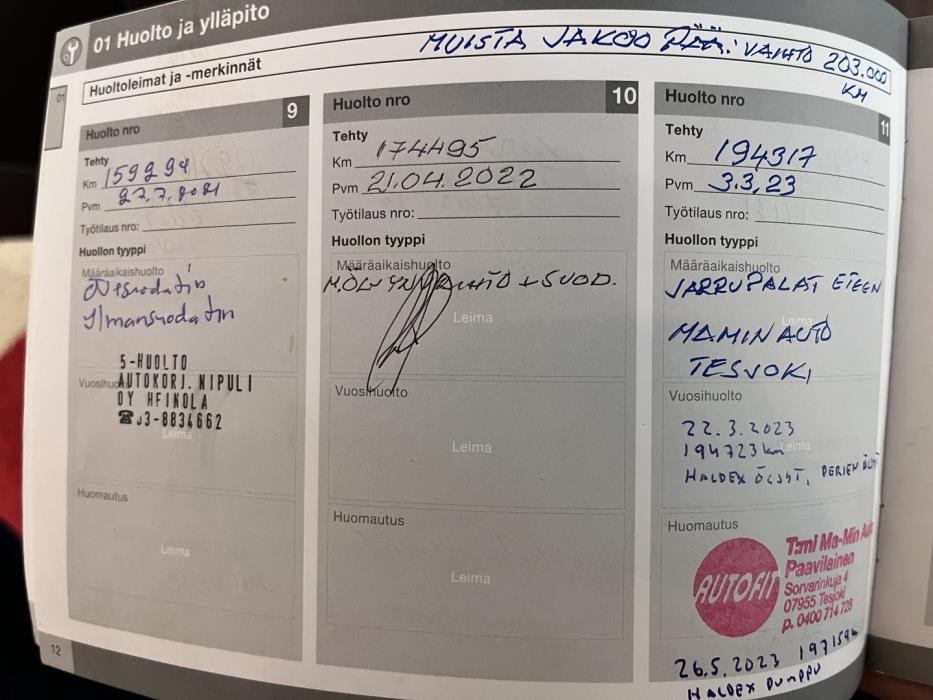 01 Huolto ja ylläpito
MUISTA JAKOO PÄÄ: VAIHTO 203.000
KM
Huoltoleimat ja -merkinnät
01
Huolto nro 9
Tehty
Km 159294
Pvm 27.7.2021
Työtilaus nro:
Huollon tyyppi
Määräaikaishuolto
Ilmansuodatin
5-HUOLTO
AUTOKORJ. NIPULI
OY HEINOLA
☎ 03-8834662
Vuosihuolto
Leima
Huomautus
Leima
Huolto nro 10
Tehty
Km 174495
Pvm 21.04.2022
Työtilaus nro:
Huollon tyyppi
Määräaikaishuolto
+ SUOD.
Leima
Vuosihuolto
Leima
Huomautus
Leima
Huolto nro 11
Tehty
Km 194317
Pvm 3.3.23
Työtilaus nro:
Huollon tyyppi
Määräaikaishuolto
JARRUPALAT ETEEN
Leima
MAMINAUTO
TESJOKI
Vuosihuolto
22.3.2023
194723 km
Leima
HALDEX ÖLJYT, PERIEN ÖLJYT
Huomautus
AUTOFIT
T:mi Ma-Min Auto
Paavilainen
Sorvarinkuja 4
07955 Tesjoki
p. 0400 714 728
26.5.2023
HALDEX PUMPPU
12